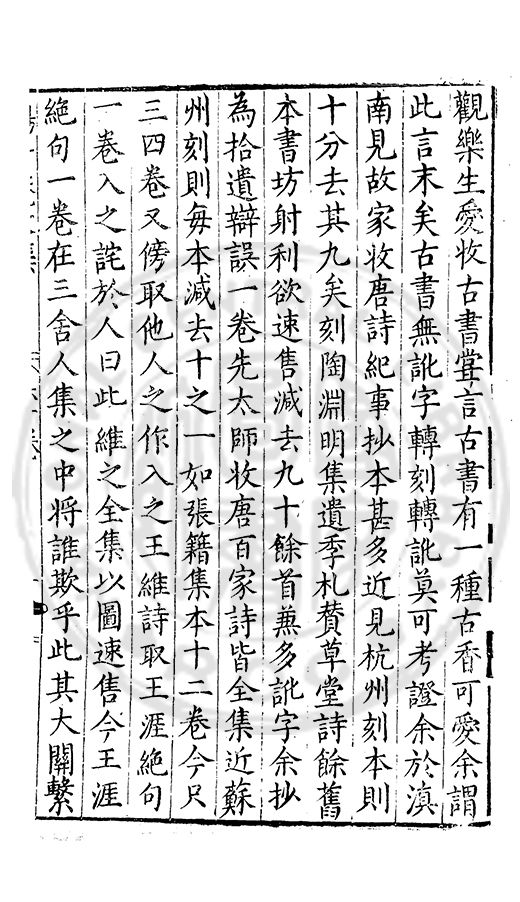 觀樂生愛收古書嘗言古書有一種古香可愛余謂
此言末矣古書無訛字轉刻轉訛莫可考證余於滇
南見故家收唐詩紀事抄本甚多近見杭州刻本則
十分去其九矣刻陶淵明集遺季札贊草堂詩餘舊
本書坊射利欲速售減去九十餘首兼多訛字余抄
為拾遺辯誤一卷先太師收唐百家詩皆全集近蘇
州刻則每本減去十之一如張籍集本十二卷今只
三四卷又傍取他人之作入之王維詩取王涯絕句
一卷入之詫於人曰此維之全集以圖速售今王涯
絕句一卷在三舍人集之中将誰欺乎此其大關繫